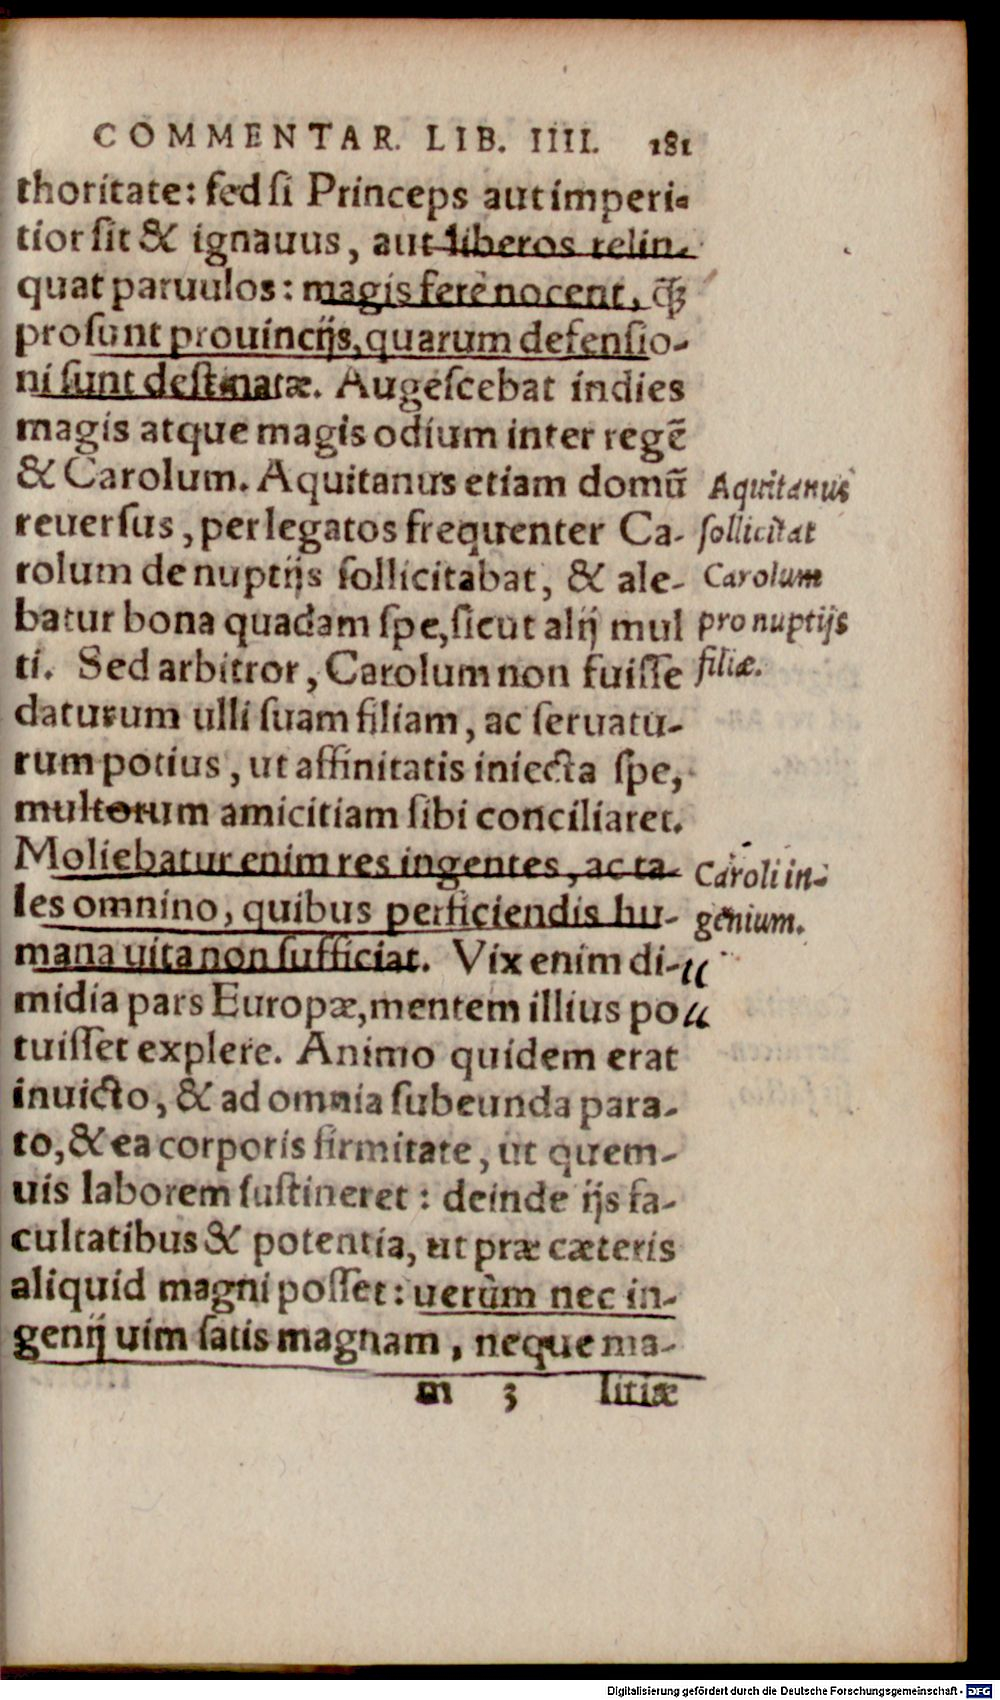 COMMENTAR. LIB. IIII. 181
thoritate: sed si Princeps aut imperi-
tior sit & ignauus, aut liberos relin-
quat paruulos: magis ferè nocent, q̃ꝫ
prosunt prouincijs, quarum defensio-
ni sunt destinatæ. Augescebat indies
magis atque magis odium inter regẽ
& Carolum. Aquitanus etiam domũ
reuersus, per legatos frequenter Ca-
rolum de nuptijs sollicitabat, & ale-
batur bona quadam spe, sicut alij mul
ti. Sed arbitror, Carolum non fuisse
daturum ulli suam filiam, ac seruatu-
rum potius, ut affinitatis iniecta spe,
multorum amicitiam sibi conciliaret.
Moliebatur enim res ingentes, ac ta-
les omnino, quibus perficiendis hu-
mana uita non sufficiat. Vix enim di-
midia pars Europæ, mentem illius po
tuisset explere. Animo quidem erat
inuicto, & ad omnia subeunda para-
to, & ea corporis firmitate, ut quem-
uis laborem sustineret: deinde ijs fa-
cultatibus & potentia, ut præ cæteris
aliquid magni posset: uerùm nec in-
genij uim satis magnam, neque ma-
m 3 litiæ
Aquitanus
sollicitat
Carolum
pro nuptijs
filiæ.
Caroli in-
genium.
Digitalisierung gefördert durch die Deutsche Forschungsgemeinschaft - DFG